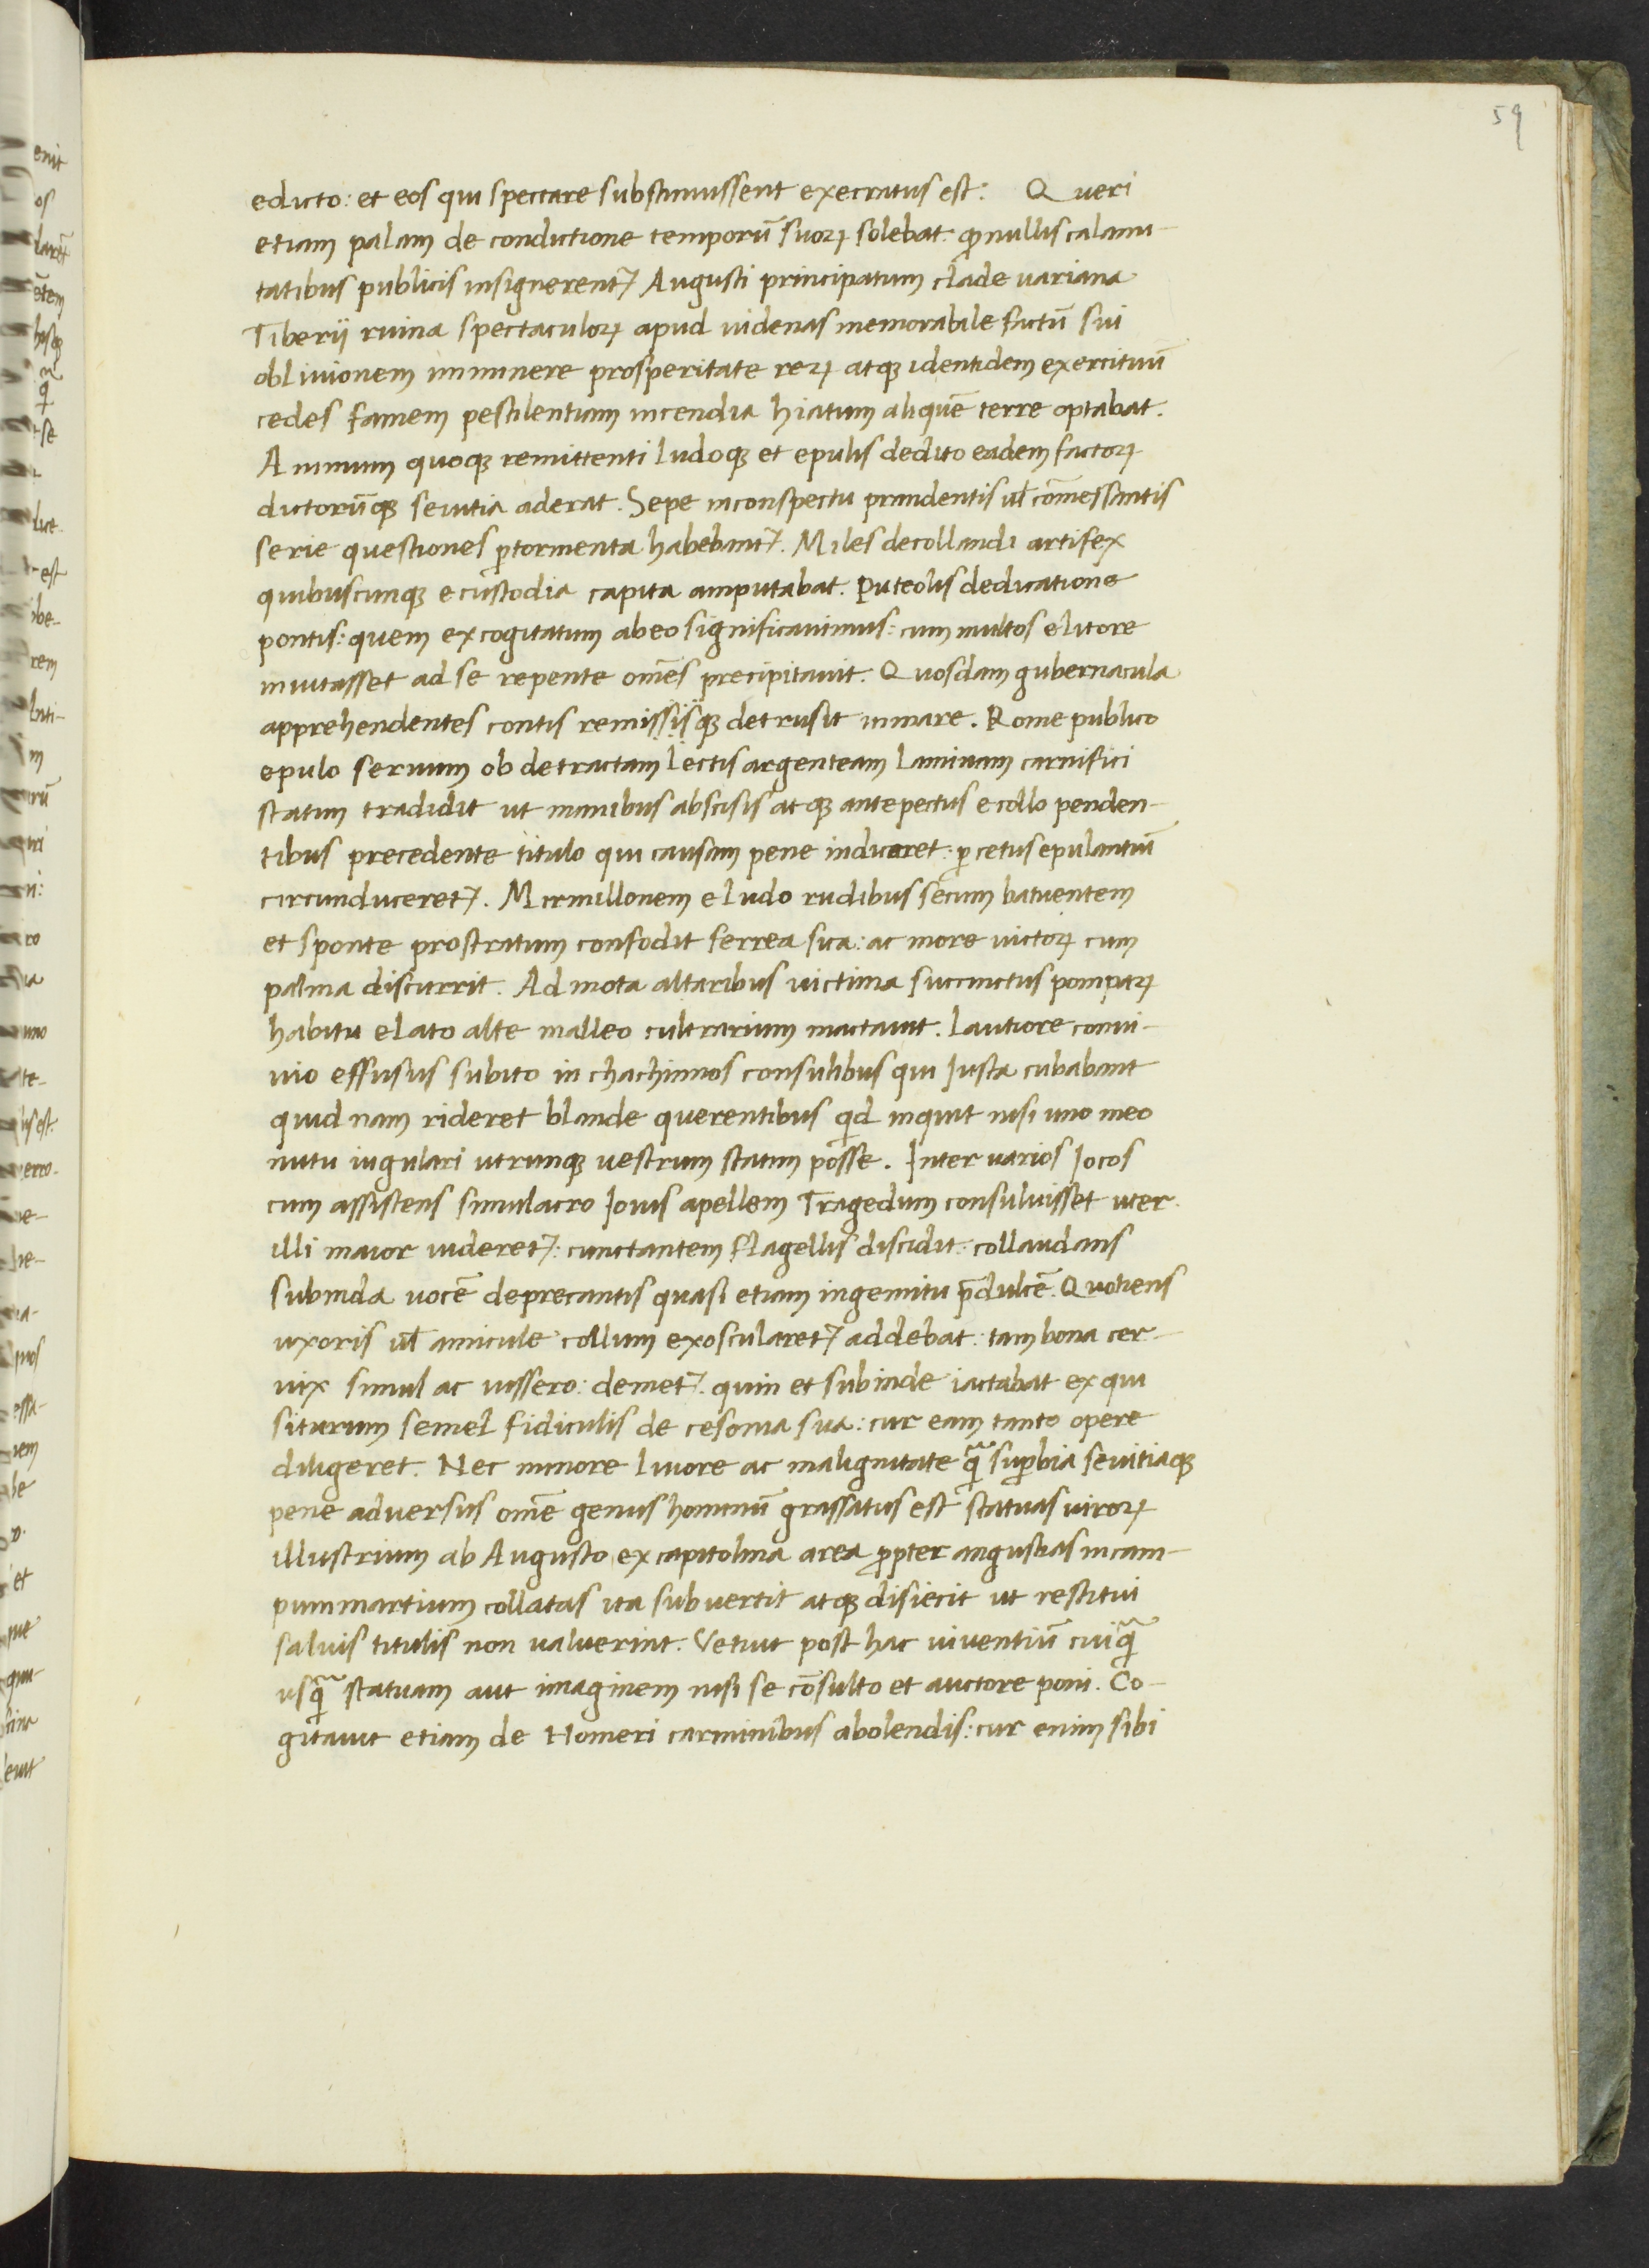 59
edicto: et eos qui spectare substinuissent execratus est: Queri
etiam palam de condictione temporū suoꝝ solebat: ꝙ nullis calami-
tatibus publicis insignerentꝛ Augusti principatum clade uariana
Tiberij ruina spectaculoꝝ apud uidenas memorabile factū sui
obliuionem imminere prosperitate reꝝ atqꝫ identidem exercituū
cedes famem pestilentiam incendia hiatum aliquē terre optabat.
Animum quoqꝫ remittenti ludoqꝫ et epulis dedito eadem factoꝝ
dictorūqꝫ seuitia aderat. Sepe inconspectu prandentis ul̄ cōmessantis
serie questiones ꝑtormenta habebantꝛ. Miles decollandi artifex
quibuscunqꝫ ecustodia capita amputabat. Puteolis dedicatione
pontis: quem excogitatum abeo significauimus: cum multos elitore
inuitasset ad se repente om̄es precipitauit. Quosdam gubernacula
apprehendentes contis remissisqꝫ detrusit inmare. Rome publico
epulo seruum ob detractam lectis argenteam laminam carnifici
statim tradidit ut manibus abscisis atqꝫ antepectus ecollo penden-
tibus precedente titulo qui causam pene indicaret: ꝑ cetus epulantiū
circunduceretꝛ. Mirmillonem eludo rudibus secum batuentem
et sponte prostratum confodit ferrea sica: ac more uictoꝝ cum
palma discurrit. Admota altaribus uictima succinctus popaꝝ
habitu elato alte malleo cultrarium mactauit. lautiore conui-
uio effusus subito in chachinnos consulibus qui Iusta cubabant
quid nam rideret blande querentibus qd inquit nisi uno meo
nutu iugulari utrunqꝫ uestrum statim posse. Inter uarios Iocos
cum assistens simulacro Iouis apellem Tragedum consuluisset uter
illi maior uideretꝛ: cunctantem flagellis discidit: collaudans
subinda uocē deprecantis quasi etiam ingemitu p̄dulcē. Quotiens
uxoris ul̄ amicule collum exoscularetꝛ addebat: tam bona cer-
uix simul ac iussero: demetꝛ. quin et subinde iactabat exqui
siturum semel fidiculis de cesonia sua: cur eam tanto opere
diligeret. Nec minore liuore ac malignitate q̄ suꝑbia seuitiaqꝫ
pene aduersus om̄e genus hominū grassatus est statuas uiroꝝ
illustrium ab Augusto ex capitolina area ꝓpter angustias incam-
pummartium collatas ita subuertit atqꝫ disiecit ut restitui
saluis titulis non ualuerint. Vetuit post hac uiuentiū cuiq̄
usq̄ statuam aut imaginem nisi se cōsulto et auctore poni. Co-
gitauit etiam de Homeri carminibus abolendis: cur enim sibi